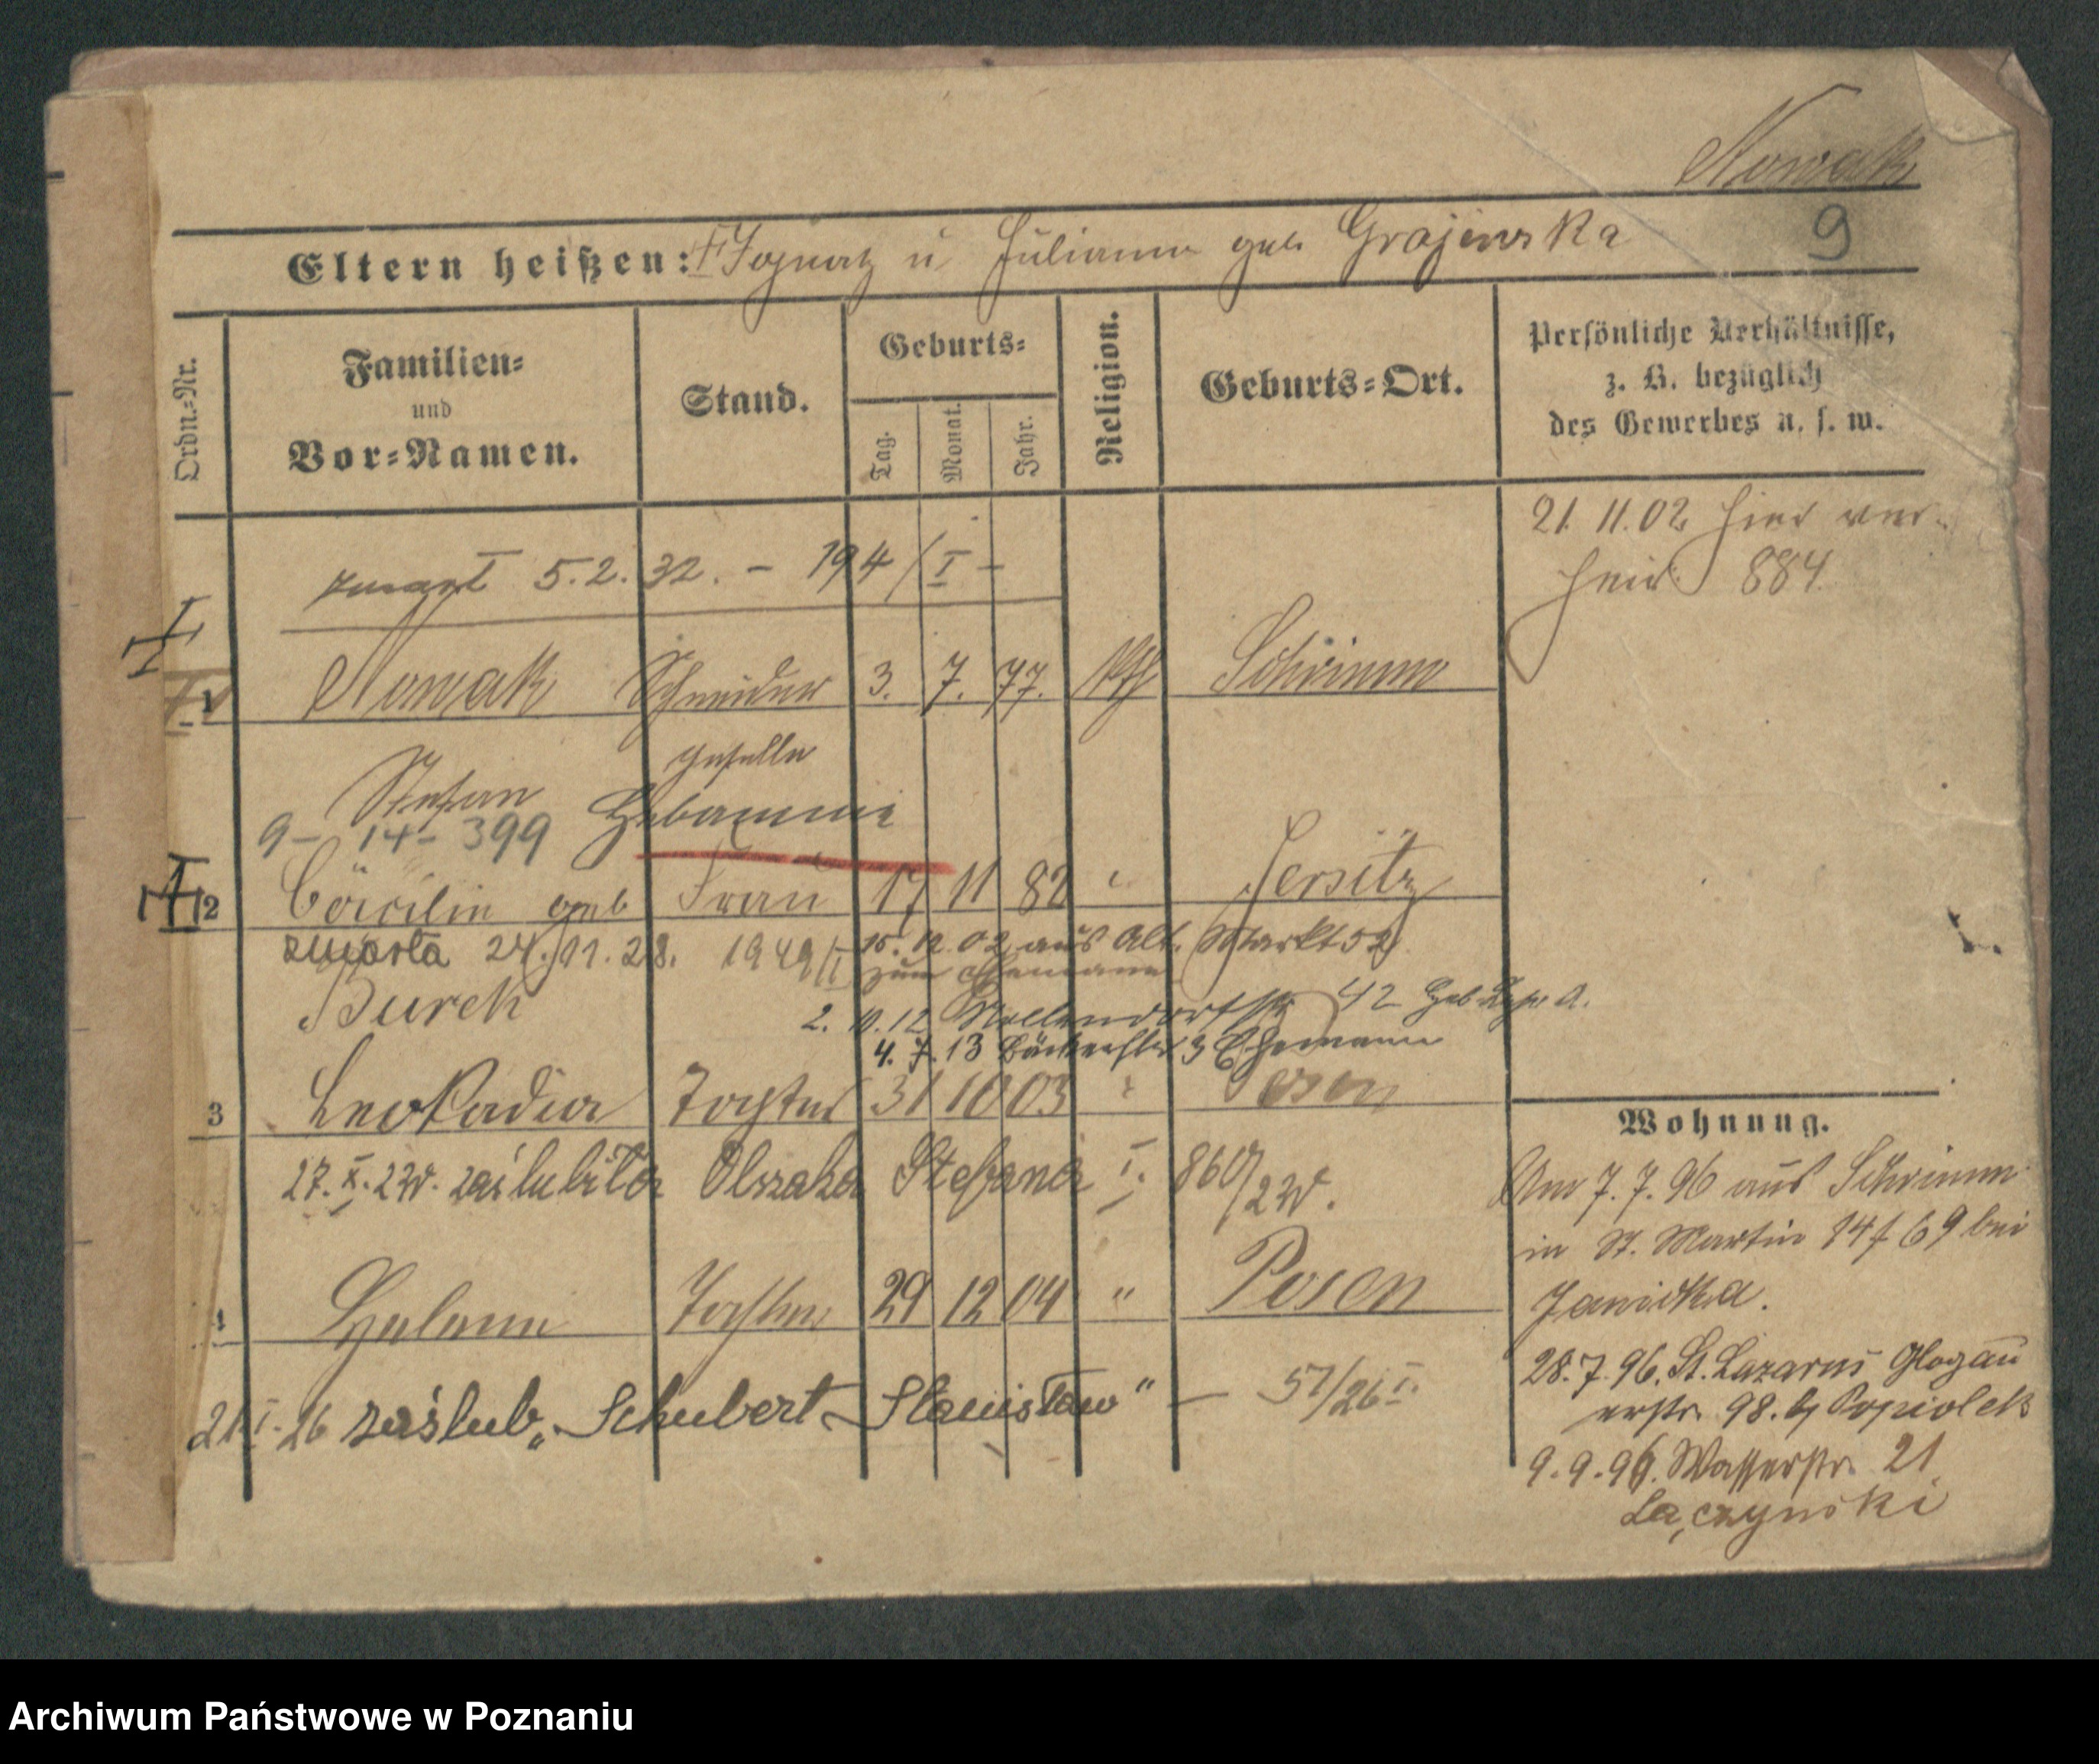 Nowak
9
Eltern heißen: † Ignatz u Juliana geb Grajewska
Ordn.-Nr.
Familien-
und
Vor-Namen.
Stand.
Geburts-
Tag.
Monat.
Jahr.
Religion.
Geburts-Ort.
Persönliche Verhältnisse,
z. B. bezüglich
des Gewerbes u. s. w.
21. 11. 02 hier ver-
heir. 884.
zmarł 5.2.32. – 194/I –
1 Nowak Schneider 3. 7. 77. kth Schrimm
geselle
Stefan Hebamme
9 – 14 – 399
2 Cäcilie geb Frau 17 11 82 " Jersitz
zmarła 24.11.28. 1949/I 15. 12. 02 aus Alt. Markt 52
zum Ehemann
Burek
2. 10. 12 Nollendorfstr 42
4. 7. 13 Bäckerstr 3 Ehemann
3 Leokadia Tochter 31 10 03 " Posen
27. X. 22r. zaślubiła Olszaka Stefana I. 860/22r.
4 Helene Tochter 29 12 04 " Posen
21 I. 26 zaślub. „Schubert Stanisław" – 57/26 I.
Wohnung.
Am 7. 7. 96 aus Schrimm
in St. Martin 14 f 69 bei
Janicka.
28. 7. 96. St. Lazarus Glogau
erstr. 98. b Popiolek
9. 9. 96. Wasserstr. 21
Łączynski
Archiwum Państwowe w Poznaniu